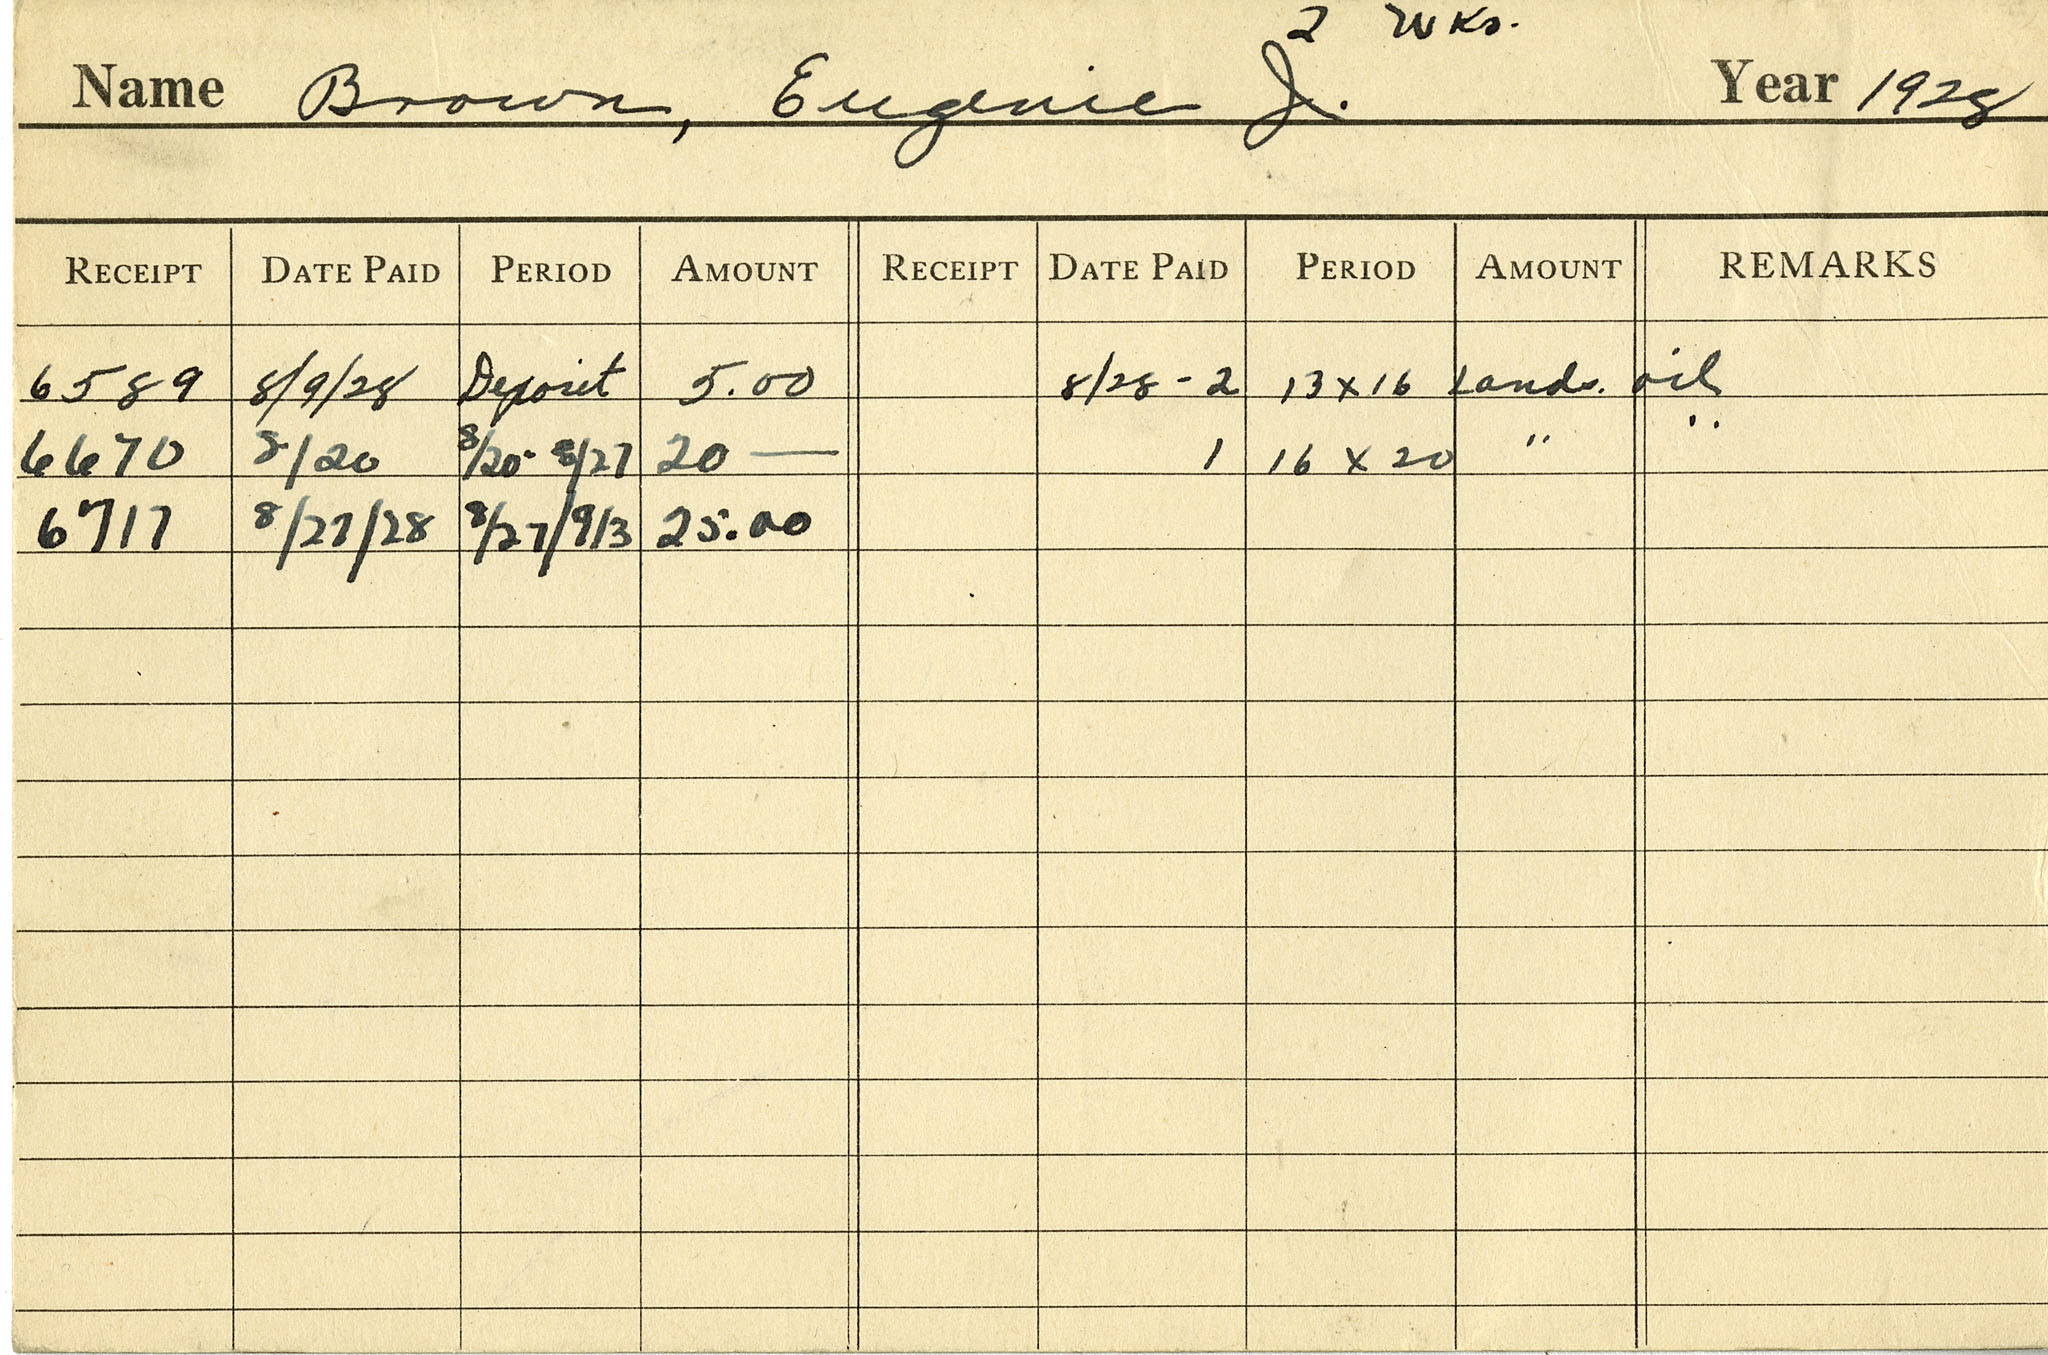 2 wks.
Name Brown, Eugenie J. Year 1928
RECEIPT DATE PAID PERIOD AMOUNT RECEIPT DATE PAID PERIOD AMOUNT REMARKS
6589 8/9/28 Deposit 5.00 8/28 - 2 13 x 16 Lands. oil
6670 8/20 8/20 - 8/27 20 — 1 16 x 20 " "
6717 8/27/28 8/27/9/3 25.00